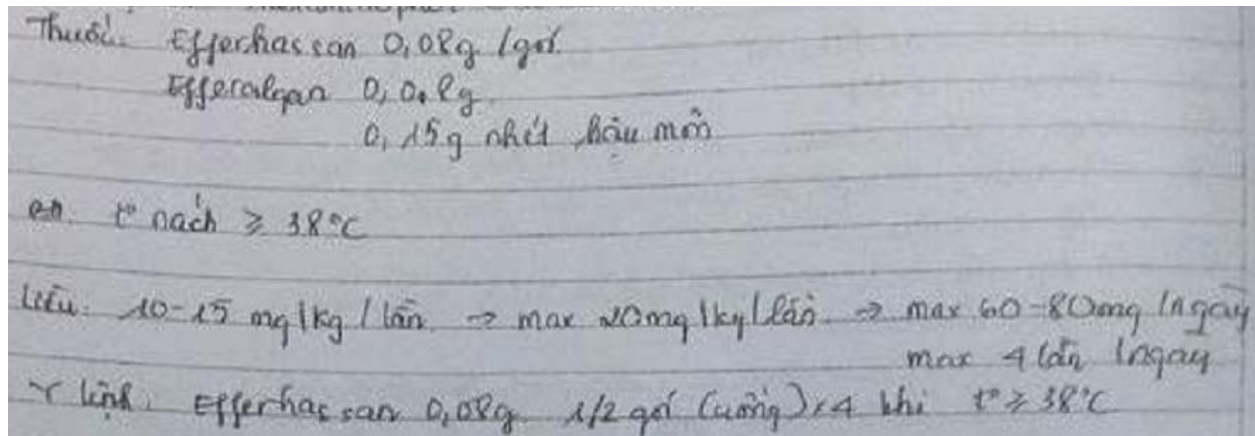 Thuốc: Efferhassan 0,08g /gói.
Efferalgan 0,08g
0,15g nhét hậu môn
t° nách ≥ 38°C
Liều: 10-15 mg/kg/lần → max 20mg/kg/lần → max 60-80mg/ngày
max 4 lần /ngày
Y lệnh: Efferhassan 0,08g 1/2 gói (uống) x4 khi t° ≥ 38°C